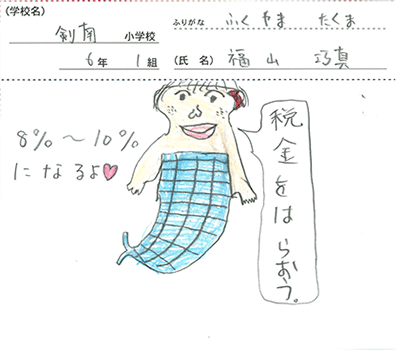 (学校名)
釗南 小学校
6年 1組
ふりがな ふくやま たくま
(氏 名) 福山 巧真
8%～10%
になるよ♥
税金をはらおう。